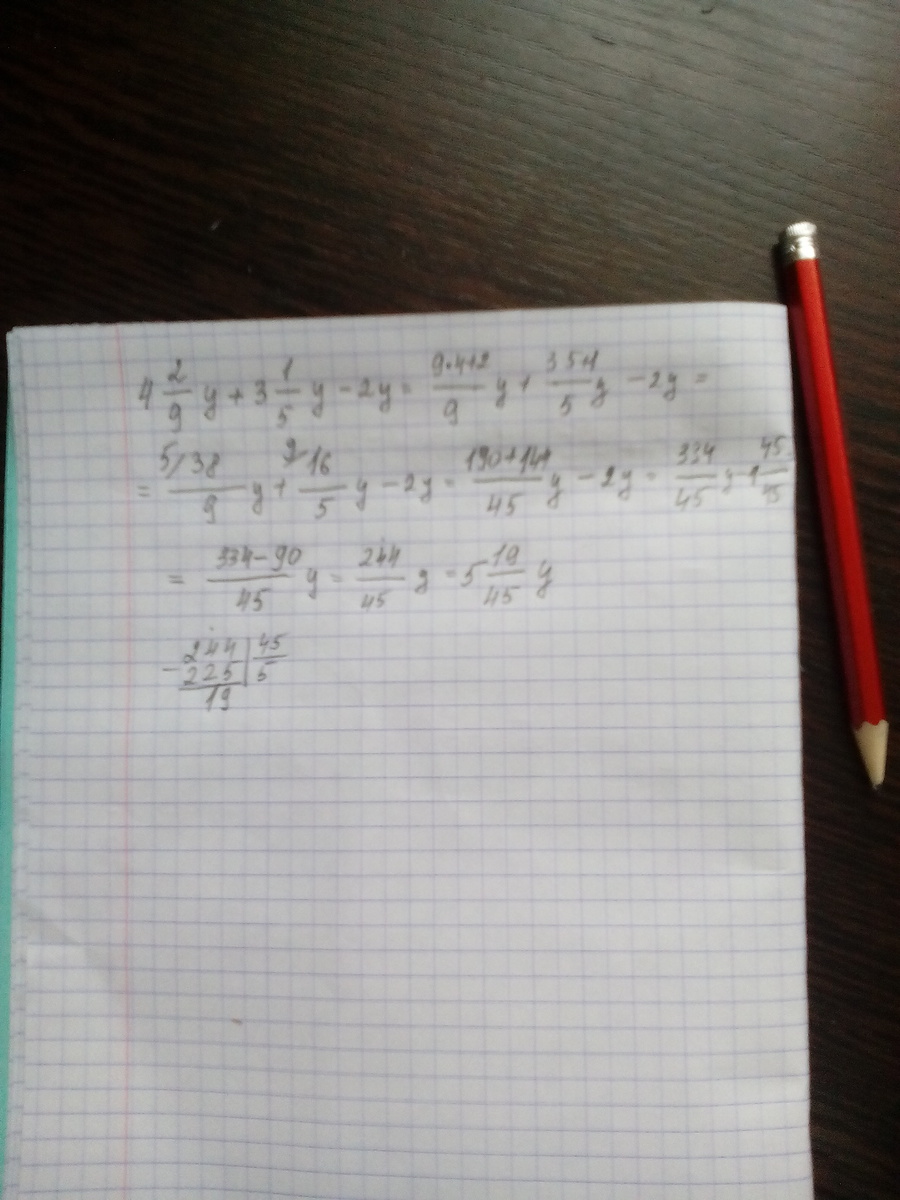 4 2/9 y + 3 1/5 y - 2y = 9·4+2/9 y + 3 5+1/5 y - 2y =
= 5/ 38/9 y + 9/ 16/5 y - 2y = 190+144/45 y - 2y = 334/45 y - 1 45/45
= 334-90/45 y = 244/45 y = 5 19/45 y
- 244 | 45
225 | 5
19